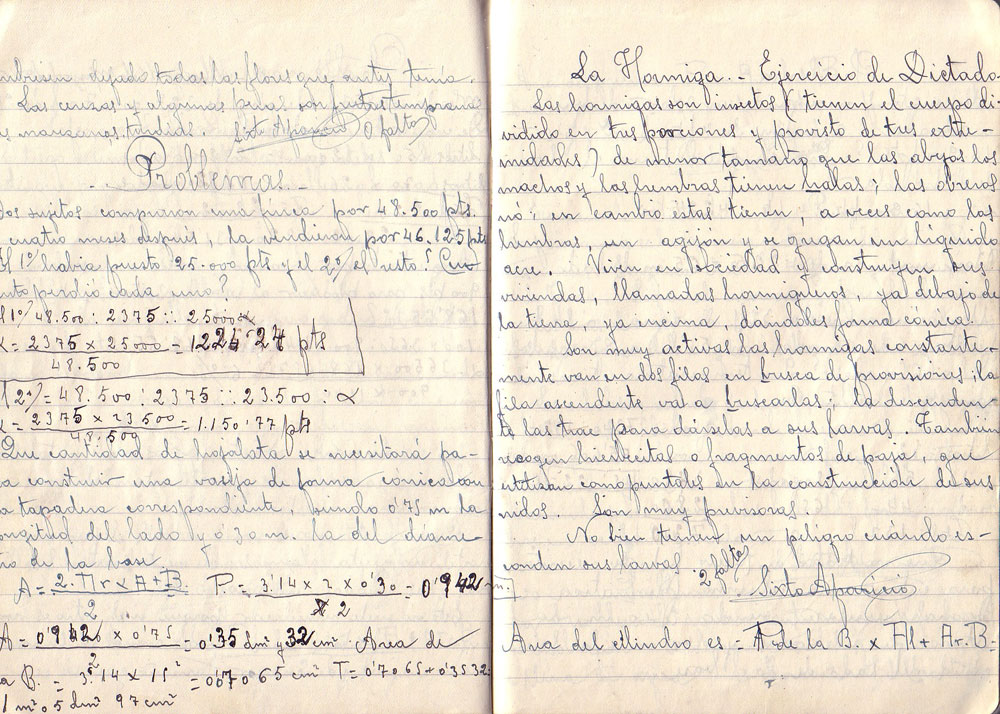 nbiesen dejado todas las flores que antes tenía.
Las cerezas y algunas peras son frutas tempranas
y manzanas, tardías. Sixto Aparicio 0 faltas
Problemas
Dos sujetos compraron una finca por 48.500 pts.
cuatro meses después, la vendieron por 46.125 pts
El 1º había puesto 25.000 pts y el 2º el resto. ¿Cuá
nto perdió cada uno?
(1º) 48.500 : 2375 :: 25000 x
x = 2375 x 25000 = 1224'24 pts
48.500
(2º) = 48.500 : 2375 :: 23.500 : x
x = 2375 x 23500 = 1.150'77 pts
48.500
Que cantidad de hojalata se necesitará pa-
a construir una vasija de forma cónica con
a tapadera correspondiente, siendo 0'75 m la
ongitud del lado y 0'30 m. la del diáme-
ro de la base.
A = 2.πr x A + B. P. = 3'14 x 2 x 0'30 = 0'942 m.
2 2
A = 0'942 x 0'75 = 0'35 dm² y 32 cm² Area de
2
a B. = 3'14 x 15² = 0'07065 cm² T = 0'7065 + 0'3532 =
1 m² 05 dm² 97 cm²
La Hormiga. - Ejercicio de Dictado
Las hormigas son insectos (tienen el cuerpo di
vidido en tres porciones y provisto de tres extre-
midades) de menor tamaño que las abejas los
machos y las hembras tienen halas; las obreras
nó; en cambio estas tienen, a veces como las
hembras, un agijón y segregan un líquido
acre. Viven en sociedad y construyen sus
viviendas, llamadas hormigueros, ya debajo de
la tierra, ya encima, dándoles forma cónica.
Son muy activas las hormigas constante-
mente van en dos filas en busca de provisiones; la
fila ascendente va a buscarlas; la descenden-
te las trae para dárselas a sus larvas. También
recogen hierbecitas o fragmentos de paja, que
utilizan como puntales en la construcción de sus
nidos. Son muy previsoras:
No bien temen un peligro cuándo es-
conden sus larvas. 2 faltas Sixto Aparicio
Area del cilindro es = P. de la B. x Al + Ar. B. =